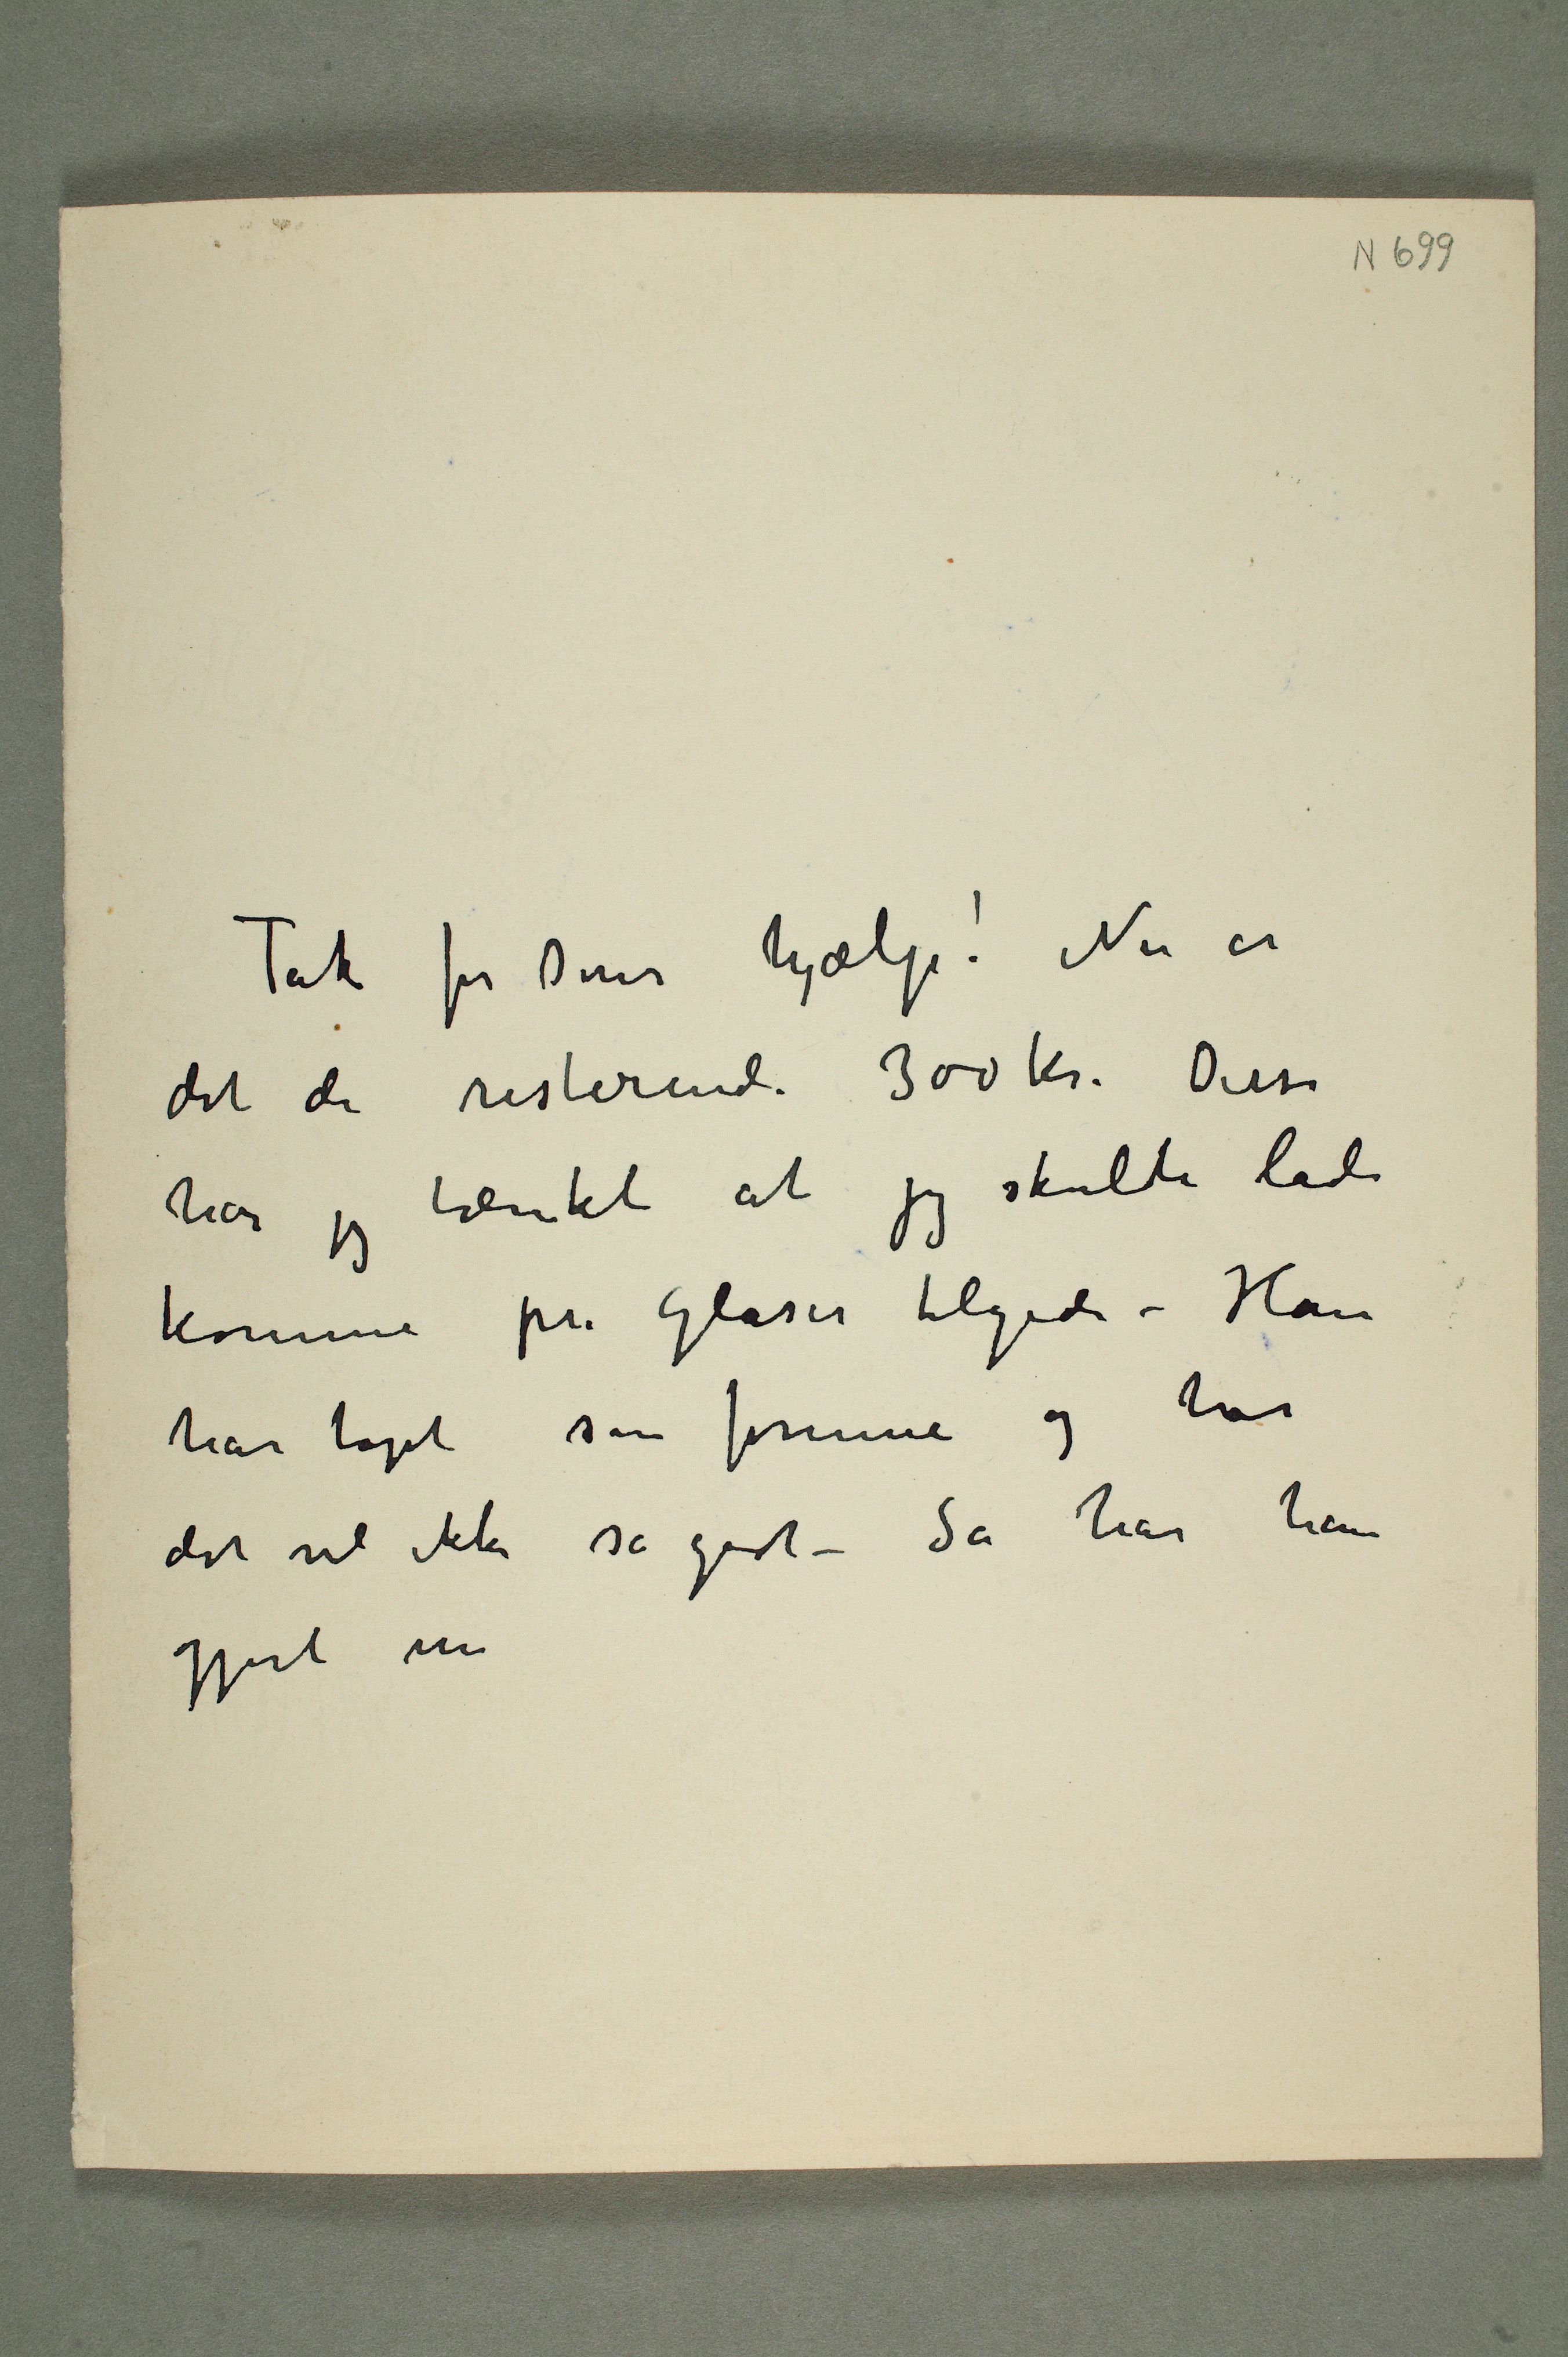 N 699
Tak for Deres hjælp! Nu er
det de resterende 300 kr. Disse
har jeg tænkt at jeg skulde lade
komme pr. Glaser tilgode – Han
har tapt sin formue og har
det vel ikke så godt – Så har han
gjort en